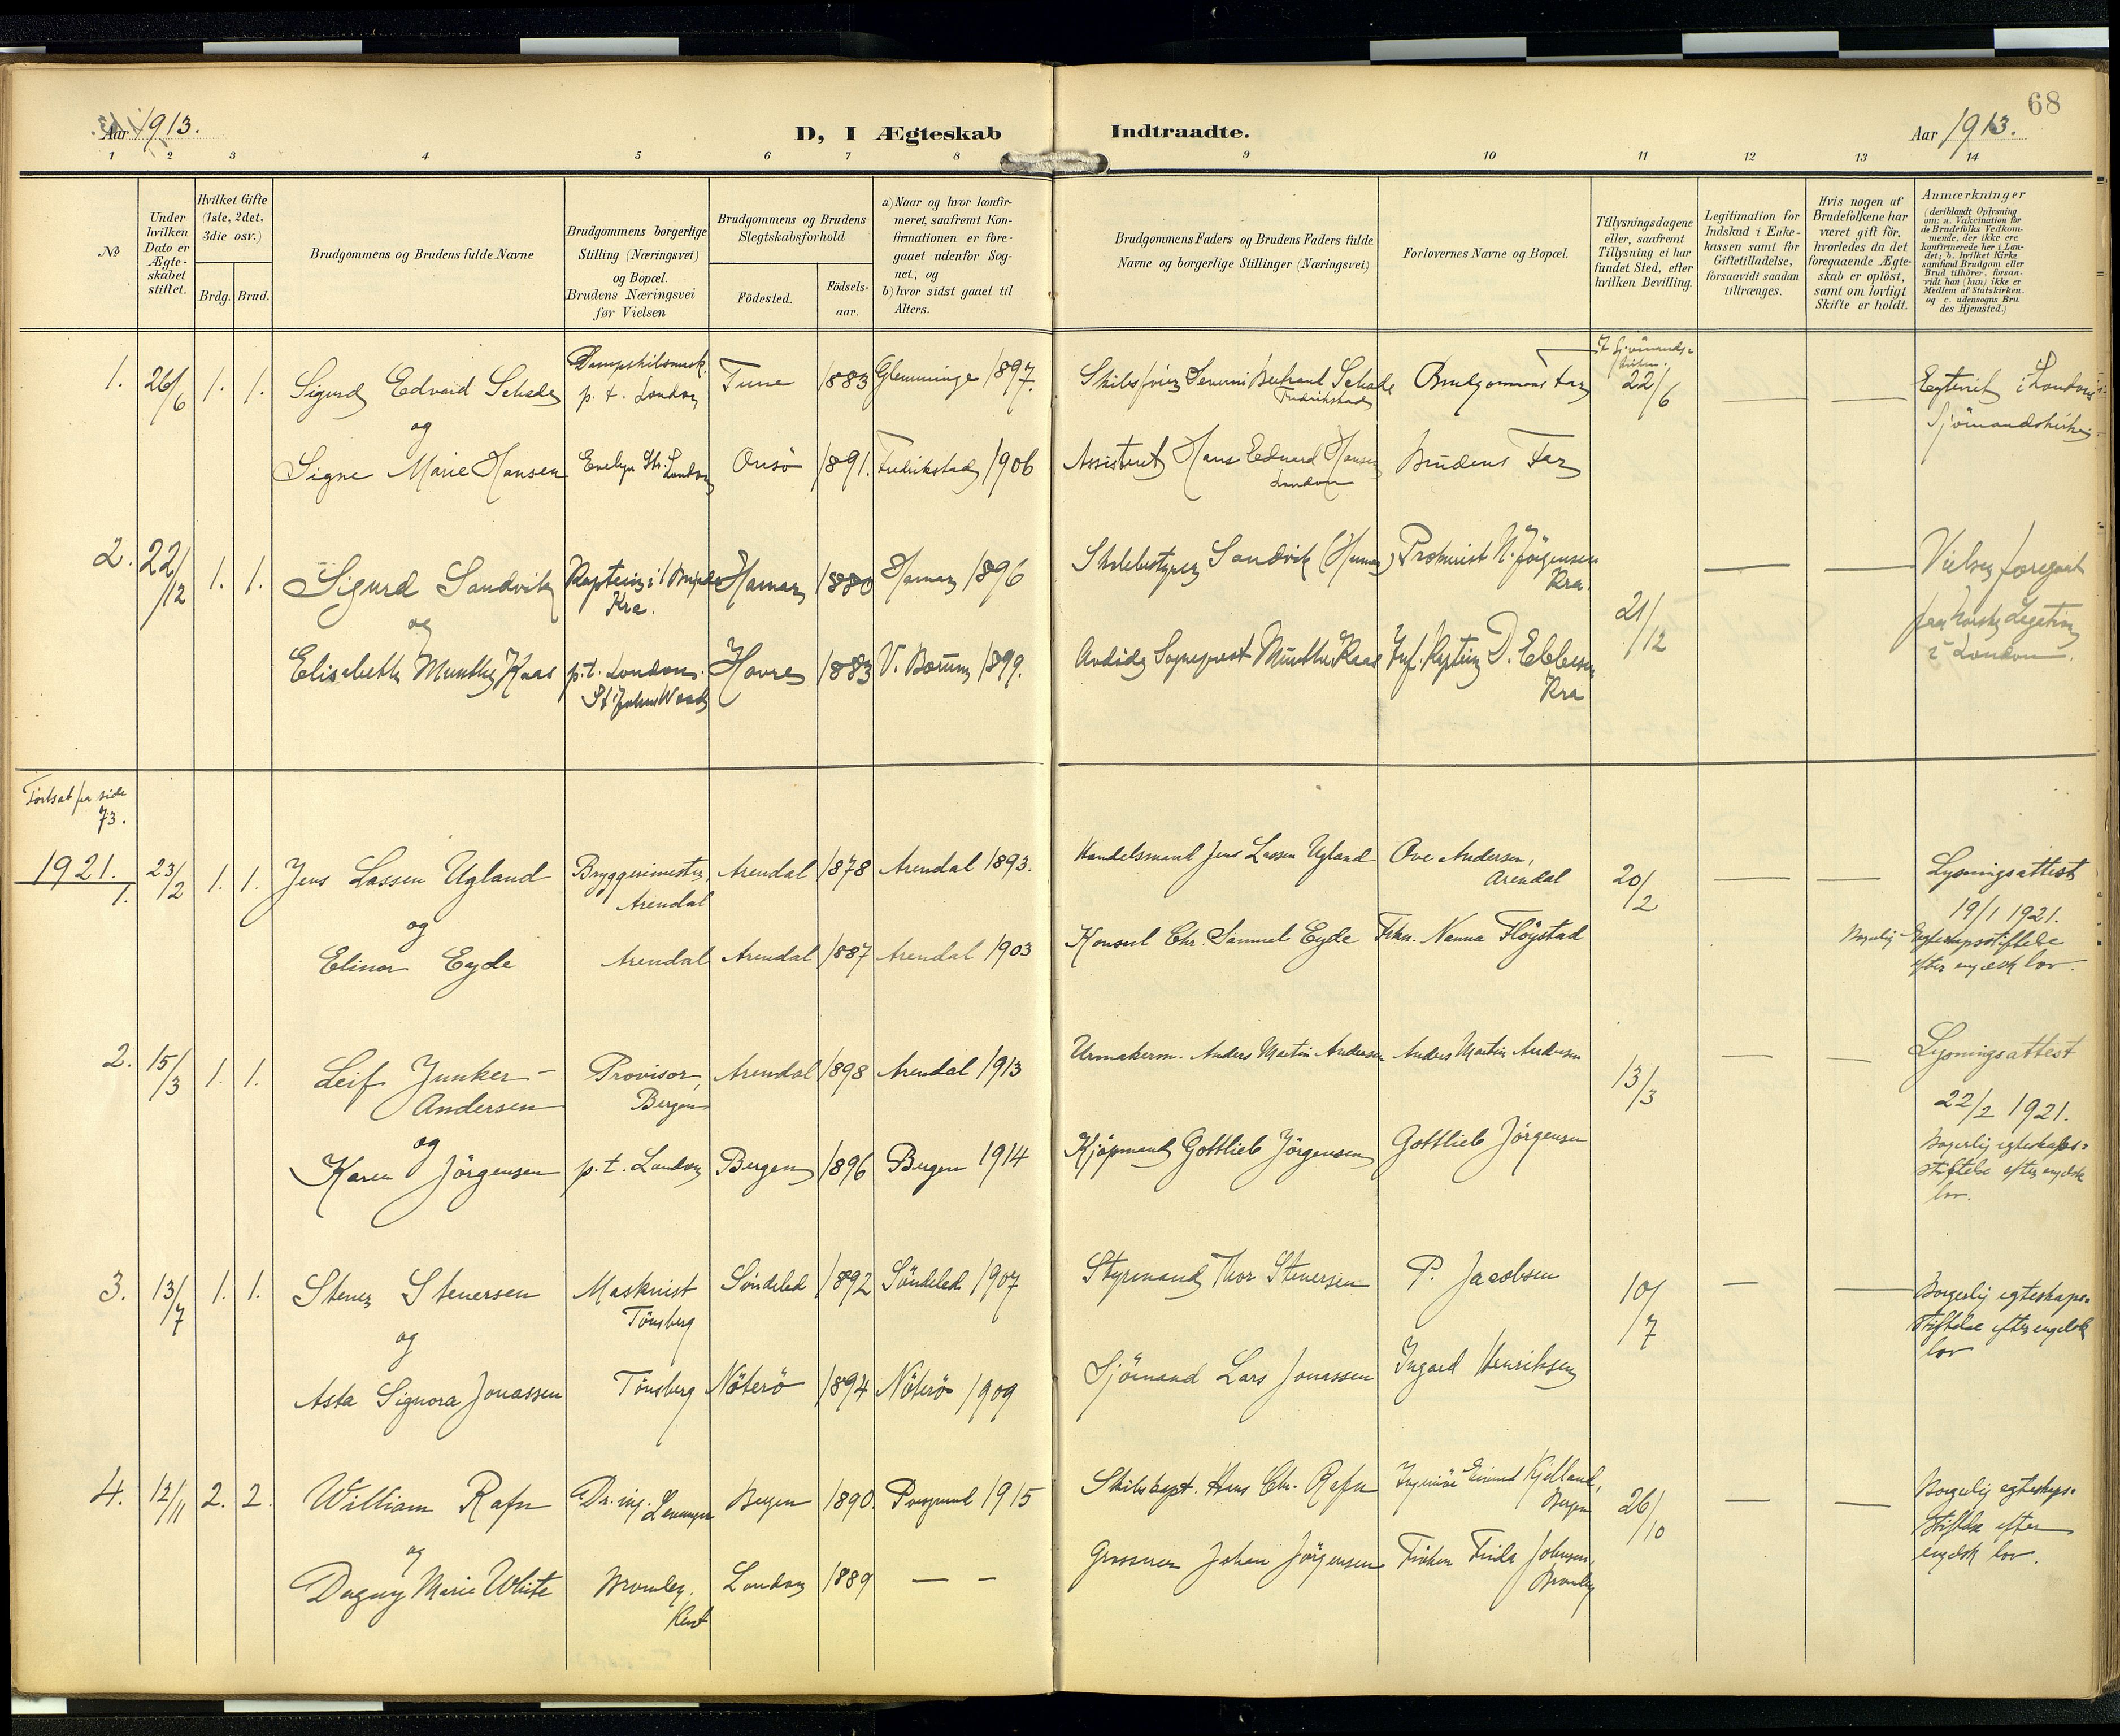 68
Aar 1913.
D, I Ægteskab Indtraadte.
Aar 1913.
1 2 3 4 5 6 7 8 9 10 11 12 13 14
No
Under hvilken Dato er Ægte-skabet stiftet.
Hvilket Gifte (1ste, 2det, 3die osv.)
Brdg. Brud.
Brudgommens og Brudens fulde Navne
Brudgommens borgerlige Stilling (Næringsvei) og Bopæl. Brudens Næringsvei før Vielsen
Brudgommens og Brudens Slegtskabsforhold
Födested.
Födsels-aar.
a) Naar og hvor konfir-meret, saafremt Kon-firmationen er fore-gaaet udenfor Sog-net, og
b) hvor sidst gaaet til Alters.
Brudgommens Faders og Brudens Faders fulde Navne og borgerlige Stillinger (Næringsvei)
Forlovernes Navne og Bopæl.
Tillysningsdagene eller, saafremt Tillysning ei har fundet Sted, efter hvilken Bevilling.
Legitimation for Indskud i Enke-kassen samt for Giftetilladelse, forsaavidt saadan tiltrænges.
Hvis nogen af Brudefolkene har været gift før, hvorledes da det foregaaende Ægte-skab er oplöst, samt om lovligt Skifte er holdt.
Anmærkninger
(deriblandt Oplysning om: a. Vakcination for de Brudefolks Vedkom-mende, der ikke ere konfirmerede her i Lan-det; b. hvilket Kirke-samfund Brudgom eller Brud tilhörer, forsaa-vidt han (hun) ikke er Medlem af Statskirken. og c. udensogns Bru des Hjemsted.)
1. 26/6 1. 1. Sigurd Edvard Schade
p. t. London
Tune 1883 Glemminge 1897.
Skibsfører Severin Schade
Fredrikstad
Brudgommens Far
22/6
i Londons
Sjömandskirke
og
Signe Marie Hansen
Evelyn Str. London
Onsö 1891. Fredrikstad 1906
Assistent Hans Edvard Hansen
London
Brudens Far
2. 22/12 1. 1. Sigurd Sandvik
Kaptein i
Kra.
Hamar 1880 Hamar 1896
Skolebestyrer Sandvik (Hamar)
Prokurist N. Jörgensen
Kra.
21/12
Vielsen foregaat
paa Norske Legation
i London.
og
Elisabeth Munthe Kaas
p. t. London.
St Johns Wood
1883 V. Bærum 1899.
Avdöde Sogneprest Munthe Kaas
Inf. Kaptein D. Ebbesen
Kra
Fortsat fra side
73.
1921.
1. 23/2 1. 1. Jens Lassen Ugland
Bryggerimester,
Arendal
Arendal 1878 Arendal 1893.
Handelsmand Jens Lassen Ugland
Ove Andersen,
Arendal
20/2
Lysningsattest
19/1 1921.
Borgerlig Egteskapsstiftelse
efter engelsk lov.
og
Elinor Eyde
Arendal Arendal 1887 Arendal 1903
Konsul Chr. Samuel Eyde
Frkn. Nanna Flöystad
2. 15/3 1. 1. Leif Junker-
Andersen
Provisor,
Bergen
Arendal 1898 Arendal 1913
Urmakerm. Anders Martin Andersen
Anders Martin Andersen
13/3
Lysningsattest
22/2 1921.
Borgerlig egteskabs=
stiftelse efter engelsk
lov.
og
Karen Jörgensen
p. t. London
Bergen 1896 Bergen 1914
Kjöpmand Gottlieb Jörgensen
Gottlieb Jörgensen
3. 13/7 1. 1. Stener Stenersen
Maskinist
Tönsberg
Söndeled 1892 Söndeled 1907
Styrmand Thor Stenersen
P. Jacobsen
10/7
Borgerlig egteskaps=
stiftelse efter engelsk
lov
og
Asta Signora Jonassen
Tönsberg Nöterö 1894 Nöterö 1909
Sjömand Lars Jonassen
Ingard Henriksen
4. 12/11 2. 2. William Rafn
Dr. ing.
Bergen 1890. Porsgrund 1915
Skibskapt. Hans Chr. Rafn
Ingeniör Kjelland,
Bergen
26/10
Borgerlig egteskaps=
stiftelse efter
engelsk lov.
og
Dagny Marie White
Bromley,
Kent
London 1889 — —
Grosserer Johan Jörgensen
Fröken Frida Johnsen,
Bromley